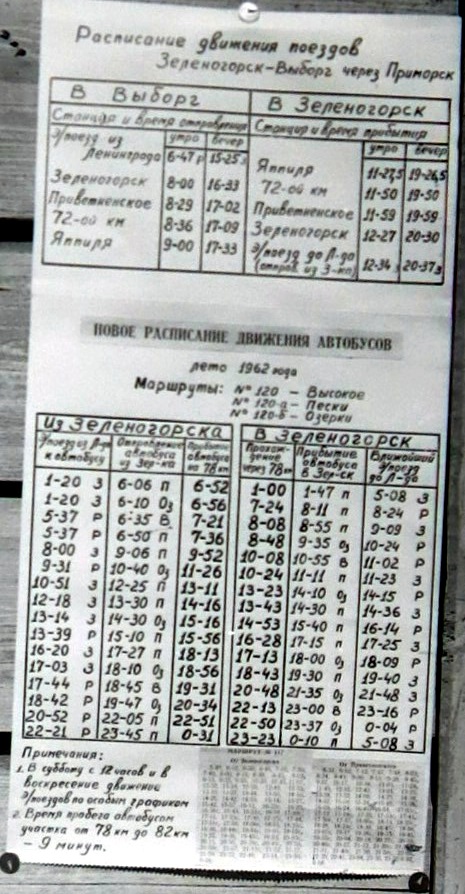 Расписание движения поездов
Зеленогорск-Выборг через Приморск
В Выборг В Зеленогорск
Станция и время отправления Станция и время прибытия
утро вечер утро вечер
Э/поезд из
Ленинграда 6-47 р 15-25 з
Зеленогорск 8-00 16-33
Приветненское 8-29 17-02
72-ой км 8-36 17-09
Яппиля 9-00 17-33
Яппиля 11-27,5 19-26,5
72-ой км 11-50 19-50
Приветненское 11-59 19-59
Зеленогорск 12-27 20-30
Э/поезд до Л-да
(отпров. из З-ка) 12-34 з 20-37 з
НОВОЕ РАСПИСАНИЕ ДВИЖЕНИЯ АВТОБУСОВ
лето 1962 года
Маршруты: № 120 – Высокое
№ 120-а – Пески
№ 120-б – Озерки
Из Зеленогорска В Зеленогорск
Э/поезд из Л-да к автобусу Отправление автобуса из Зер-ка Прибытие автобуса на 78 км Прохождение через 78 км Прибытие автобуса в Зер-ск Ближайший э/поезд до Л-да
1-20 З 6-06 П 6-52 1-00 1-47 П 5-08 З
1-20 З 6-10 Оз 6-56 7-24 8-11 П 8-24 Р
5-37 Р 6-35 В 7-21 8-08 8-55 П 9-09 З
5-37 Р 6-50 П 7-36 8-48 9-35 Оз 10-24 Р
8-00 З 9-06 П 9-52 10-08 10-55 В 11-02 Р
9-31 Р 10-40 Оз 11-26 10-24 11-11 П 11-23 З
10-51 З 12-25 П 13-11 13-23 14-10 Оз 14-15 Р
12-18 З 13-30 П 14-16 13-43 14-30 П 14-36 З
13-14 З 14-30 Оз 15-16 14-53 15-40 П 16-14 Р
13-39 Р 15-10 П 15-56 16-28 17-15 П 17-25 З
16-20 З 17-27 П 18-13 17-13 18-00 Оз 18-09 Р
17-03 З 18-10 Оз 18-56 18-43 19-30 П 19-40 З
17-44 Р 18-45 В 19-31 20-48 21-35 Оз 21-48 З
18-42 Р 19-47 Оз 20-34 22-13 23-00 В 23-16 Р
20-52 Р 22-05 П 22-51 22-50 23-37 Оз 0-04 Р
22-21 Р 23-45 П 0-31 23-23 0-10 П 5-08 З
Примечания:
1. В субботу с 12 часов и в
воскресение движение
э/поездов по особым графикам
2. Время пробега автобусом
участка от 78 км до 82 км
– 9 минут.